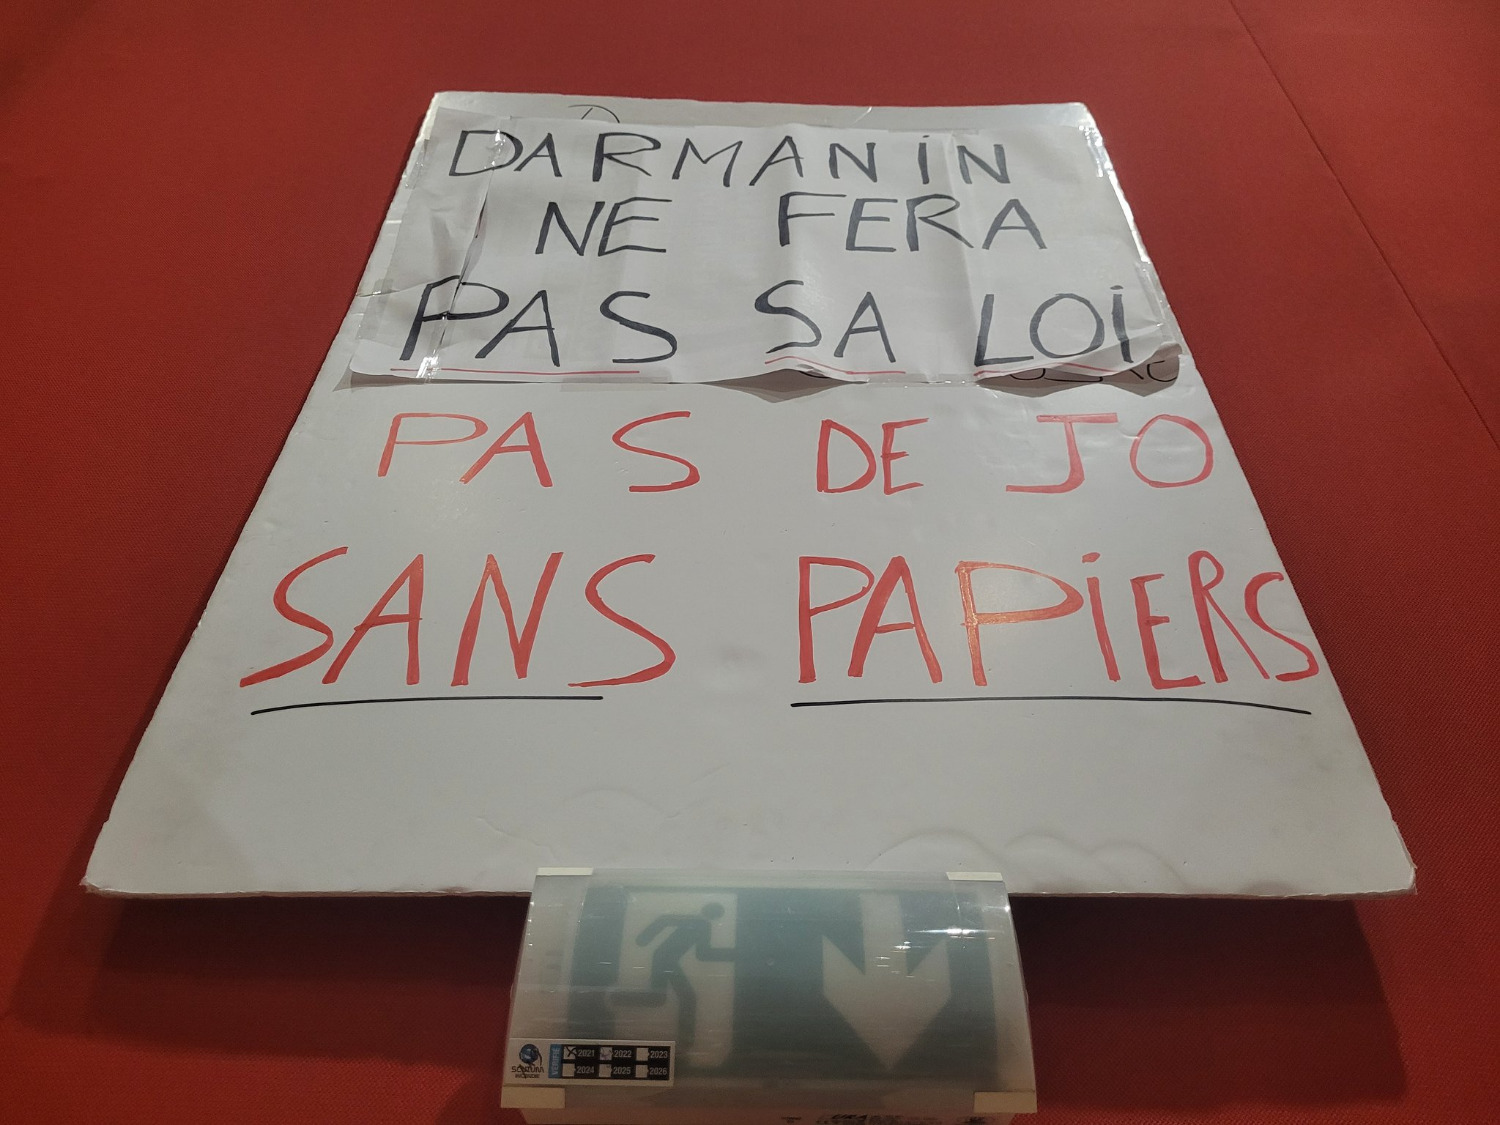 DARMANIN
NE FERA
PAS SA LOI
PAS DE JO
SANS PAPIERS
SCUTUM
VÉRIFIÉ
2021 2022 2023
2024 2025 2026